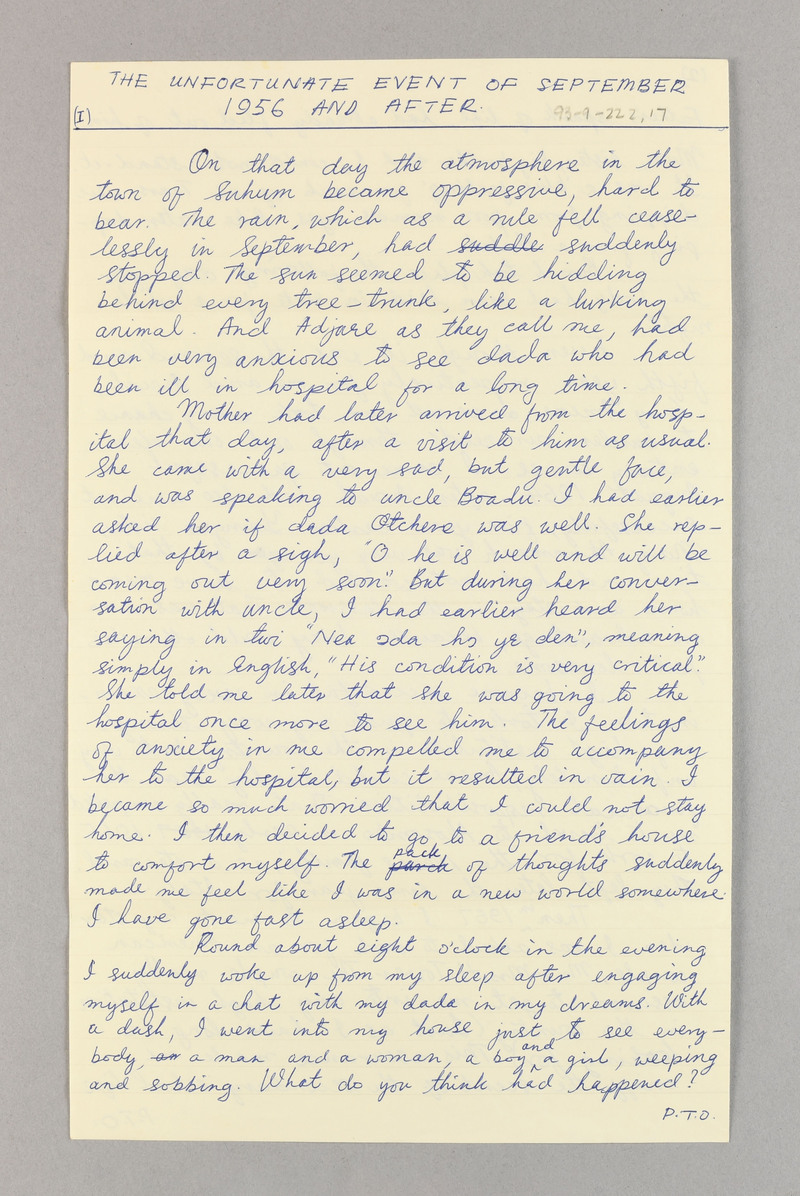 THE UNFORTUNATE EVENT OF SEPTEMBER
1956 AND AFTER.
(I)
93-9-222,17
On that day the atmosphere in the
town of Suhum became oppressive, hard to
bear. The rain, which as a rule fell cease-
lessly in September, had suddle suddenly
stopped. The sun seemed to be hidding
behind every tree-trunk, like a lurking
animal. And Adjare as they call me, had
been very anxious to see dada who had
been ill in hospital for a long time.
Mother had later arrived from the hosp-
ital that day, after a visit to him as usual.
She came with a very sad, but gentle face,
and was speaking to uncle Boadu. I had earlier
asked her if dada Otchere was well. She rep-
lied after a sigh, "O he is well and will be
coming out very soon." But during her conver-
sation with uncle, I had earlier heard her
saying in twi "Nea ɔda hɔ yɛ den", meaning
simply in English, "His condition is very critical".
She told me later that she was going to the
hospital once more to see him. The feelings
of anxiety in me compelled me to accompany
her to the hospital, but it resulted in vain. I
became so much worried that I could not stay
home. I then decided to go to a friend's house
to comfort myself. The parck pack of thoughts suddenly
made me feel like I was in a new world somewhere.
I have gone fast asleep.
Round about eight o'clock in the evening
I suddenly woke up from my sleep after engaging
myself in a chat with my dada in my dreams. With
a dash, I went into my house just to see every-
body, an a man and a woman, a boy and a girl, weeping
and sobbing. What do you think had happened?
P.T.O.